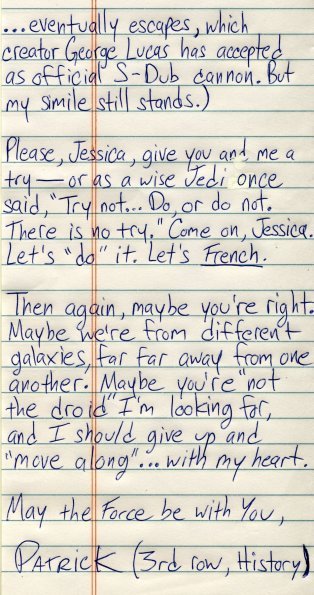 ...eventually escapes, which
creator George Lucas has accepted
as official S-Dub cannon. But
my simile still stands.)
Please, Jessica, give you and me a
try—or as a wise Jedi once
said, "Try not... Do, or do not.
There is no try." Come on, Jessica.
Let's "do" it. Let's French.
Then again, maybe you're right.
Maybe we're from different
galaxies, far far away from one
another. Maybe you're "not
the droid" I'm looking for,
and I should give up and
"move along"... with my heart.
May the Force be with You,
PATRICK (3rd row, History)